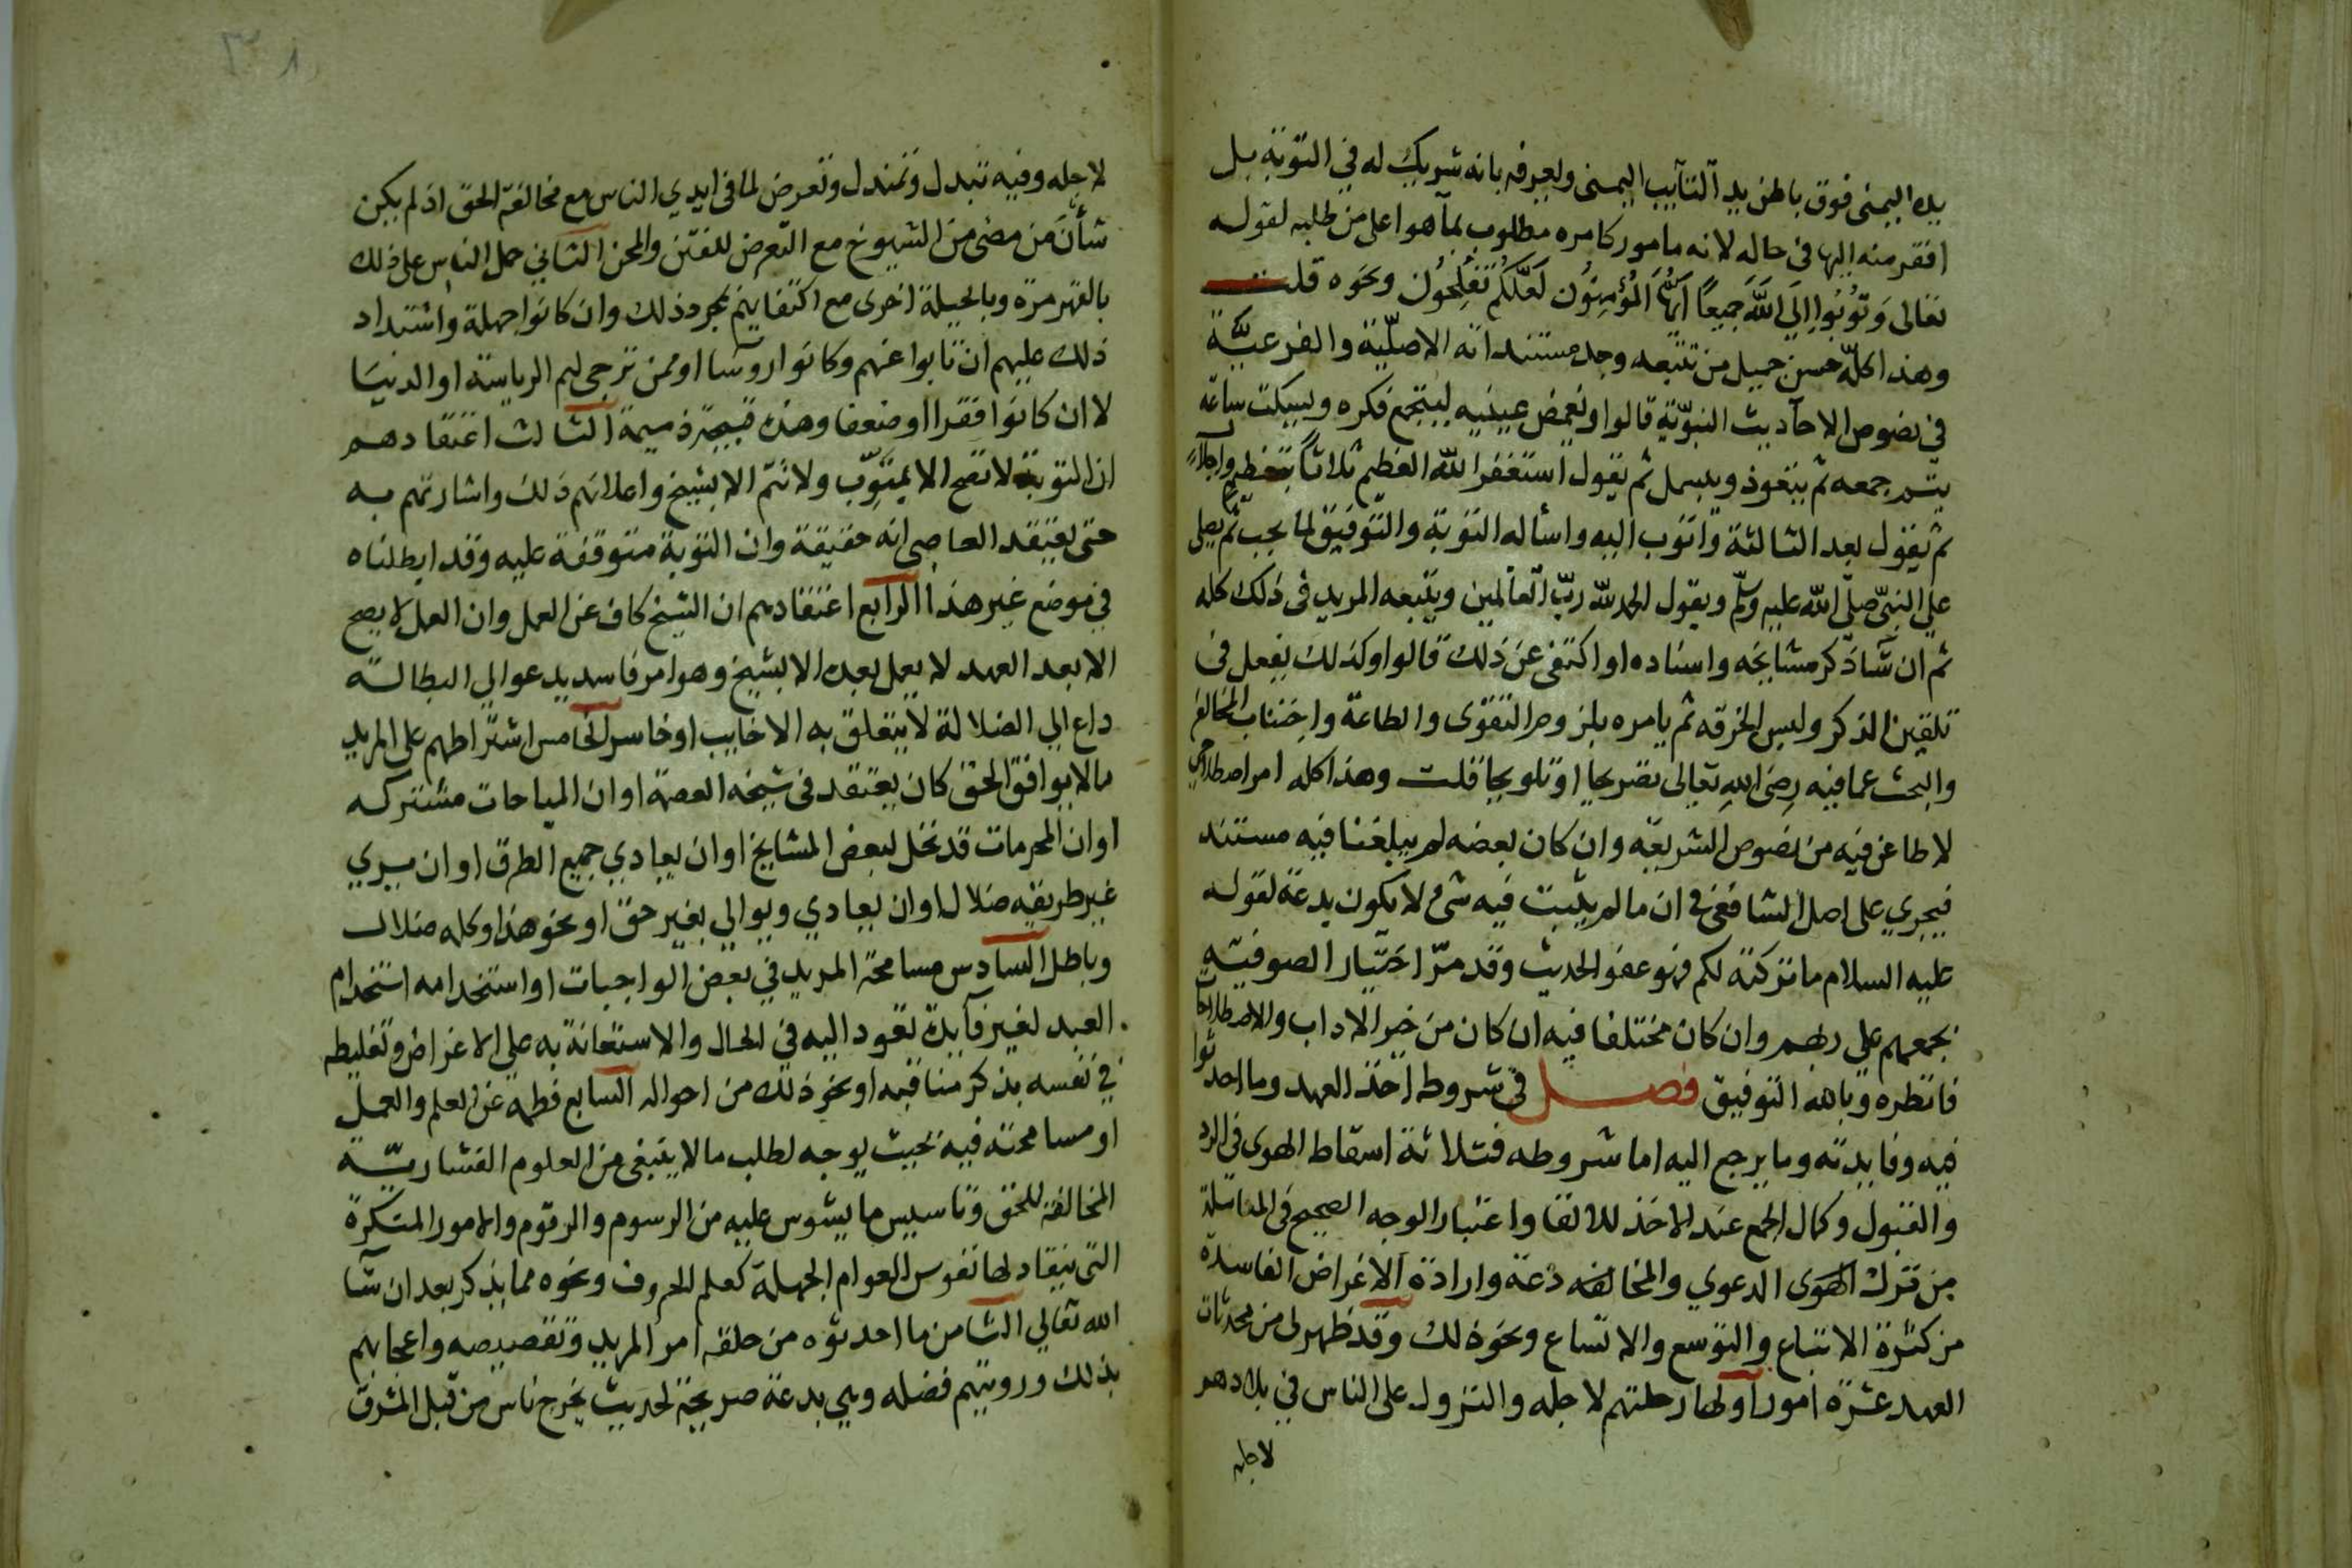 يده اليمنى فوق باطن يد التآيب اليمنى ولعرفه بانه شريك له في التوبة بل
افقر منه اليها فى حاله لانه مامور كامره مطلوب بمآ هوا على من طلبه لقوله
تعالى وَتُوبُوا اِلَى اللَّهِ جَمِيعًا اَيُّهَا الْمُؤْمِنُون لَعَلَّكُم تُفْلِحُون ونحوه قلت
وهذا كلّه حسن جميل من تتبعه وجد مستنداته الاصليّة والفرعيّة
في نصوص الاحآديث النبوّية قالوا ويغمض عينيه ليجتمع فكره وليسكت ساعة
يتم جمعه ثم يتعوذ ويبسمل ثم يقول استغفر الله العظيم ثلاثاً بتعظيم واجلال
ثم يقول بعد الثالثة واتوب اليه واسأله التوبة والتوفيق لما يجب ثم يصلى
على النبىّ صلّى الله عليه وسلّم ويقول الحمد لله ربّ العالمين ويتبعه المريد فى ذلك كله
ثم ان شآ ذكر مشايخه واسناده او اكتفى عن ذلك قالوا وكذلك يفعل فى
تلقين الذكر ولبس الخرقه ثم يامره بلزوم التقوى والطاعة واجتناب المخالفة
والبحث عما فيه رضى الله تعالى تصريحا او تلويحا قلت وهذا كله امر اصطلاحي
لا طاعن فيه من نصوص الشريعة وان كان بعضه لم يبلغنا فيه مستند
فيجري على اصل الشافعى في ان ما لم يثبت فيه شئ لا يكون بدعة لقوله
عليه السلام ما تركته لكم فهو عفو الحديث وقد مرّ اختيار الصوفيّه
بجمعهم على ربهم وان كان مختلفا فيه ان كان من خير الاداب والاصطلاحات
فانظره وبالله التوفيق فصل في شروط اخذ العهد وما احدثوا
فيه وفايدته وما يرجع اليه اما شروطه فثلاثة اسقاط الهوى فى الرد
والقبول وكمال الجمع عند الاخذ للالقا واعتبار الوجه الصحيح فى المقابلة
من ترك الهوى الدعوي والمخالفه دعة وارادة الاغراض الفاسدة
من كثرة الاتباع والتوسع والاتساع ونحو ذلك وقد ظهر لى من محدثات
العهد عشرة امور اولها رحلتهم لاجله والنزول على الناس في بلادهم
لاجله
لاجله وفيه تبدل وتمندل وتعرض لما فى ايدي الناس مع مخالفة الحق اذ لم يكن
شأن من مضى من الشيوخ مع التعرض للفتن والمحن الثاني حمل الناس على ذلك
بالقهر مرة وبالحيلة اخرى مع اكتفايهم بمجرد ذلك وان كانوا جهلة واشتداد
ذلك عليهم ان تابوا عنهم وكانوا روسا او ممن ترجى لهم الرياسة او الدنيا
لا ان كانوا فقرا او ضعفا وهذه قبيحة ذميمة الثالث اعتقادهم
ان التوبة لا تصح الا بمتوّب ولا تتمّ الا بشيخ واعلانهم ذلك واشارتهم به
حتى يعتقد العاصى انه حقيقة وان التوبة متوقفة عليه وقد ابطلناه
في موضع غير هذا الرابع اعتقادهم ان الشيخ كاف عن العمل وان العمل لا يصح
الا بعد العهد لا يعمل بعده الا بشيخ وهو امر فاسد يدعو الي البطالة
داع الي الضلالة لا يتعلق به الا خايب او خاسر الخامس اشتراطهم على المريد
ما لا يوافق الحق كان يعتقد فى شيخه العصمة او ان المباحات مشتركه
او ان المحرمات قد تحل لبعض المشايخ او ان يعادي جميع الطرق او ان يري
غير طريقه ضلال او ان يعادي ويوالي بغير حق او نحو هذا وكله ضلال
وباطل السادس مسامحة المريد في بعض الواجبات او استخدامه استخدام
العبد لغير فآيدة تعود اليه في الحال والاستعانة به على الاغراض وتغليطه
في نفسه بذكر مناقبه او نحو ذلك من احواله السابع فطمه عن العلم والعمل
او مسامحته فيه بحيث يوجه لطلب ما لا ينبغى من العلوم الفشاريّة
المخالفة للحق وتاسيس ما يشوس عليه من الرسوم والرقوم والامور المنكرة
التى ينقاد لها نفوس العوام الجهلة كعلم الحروف ونحوه مما يذكر بعد ان شآ
الله تعالي الثامن ما احدثوه من حلقه امر المريد وتقصيصه واعجابهم
بذلك ورويتهم فضله وهي بدعة صريحة لحديث يخرج ناس من قبل المشرق